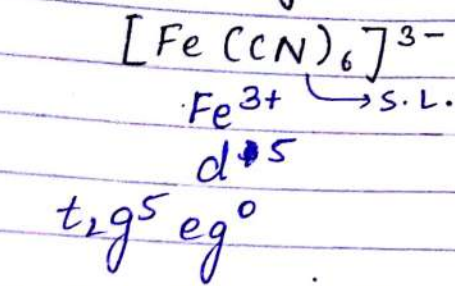 [Fe(CN)₆]³⁻
↳ S.L.
Fe³⁺
d⁵
t₂g⁵ eg⁰